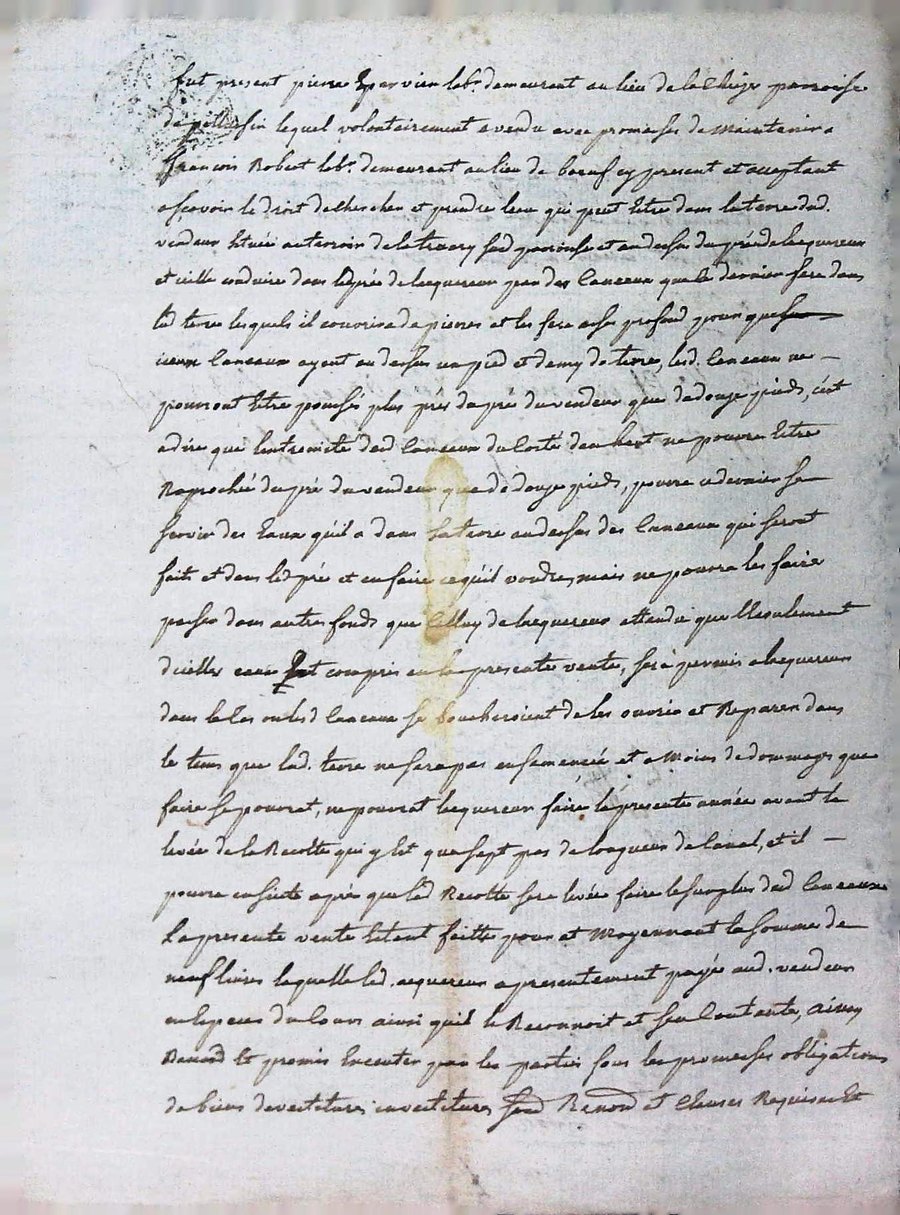 fut present pierre Epervier labr. demeurant au lieu de la paroisse
de lequel volontairement a vendu avec promesses de Maintenir a
françois Robert labr. demeurant au lieu de boeuf cy present et acceptant
a scavoir le droit de chercher et prendre leau qui peut Etre dans la terre dud.
vendeur située au terroir de sud. paroisse et au dessus du pré de lacquereur
et icelle conduire dans led. pré de lacquereur par des Caneaux que ce dernier fera dans
lad terre lesquels il couvrira de pierres et les fera asses profond pour que
iceux Caneaux ayent au dessus un pied et demy de terre, lesd. Caneaux ne
pourront Etre poussés plus près du pré du vendeur que de douze pieds, cest
a dire que lextremité desd Caneaux du Costé den haut ne pourra Etre
Raprochée du pré du vendeur que de douze pieds, pourra ce dernier se
servir des Eaux qu'il a dans sa terre au dessus des Caneaux qui seront
faits et dans led pré et en faire ce qu'il voudra, mais ne pourra les faire
passer dans autres fonds que Celluy de lacquereur attendu que lEcoulement
dicelles eaux Est compris en la presente vente, sera permis a lacquereur
dans le Cas ou lesd Canaux se boucheroient de les ouvrir et Reparer dans
le tems que lad. terre ne sera pas ensemencée et a Moins de dommages que
faire se pourrat, ne pourrat lacquereur faire la presente année avant la
levée de la Recolte qui y Est que sept pas de longueur de Canal, et il
pourra ensuite après que lad Recolte sera levée faire le surplus desd Canaux
La presente vente Etant faitte pour et Moyennant la somme de
neuf livres laquelle led. acquereur a presentement payée aud. vendeur
en Especes du Cours ainsi quil le Reconnoit et sen Contente, Ainsy
Convenu Et promis Executer par les parties sous les promesses obligations
de biens devestitures investitures et Clauses Requises Et